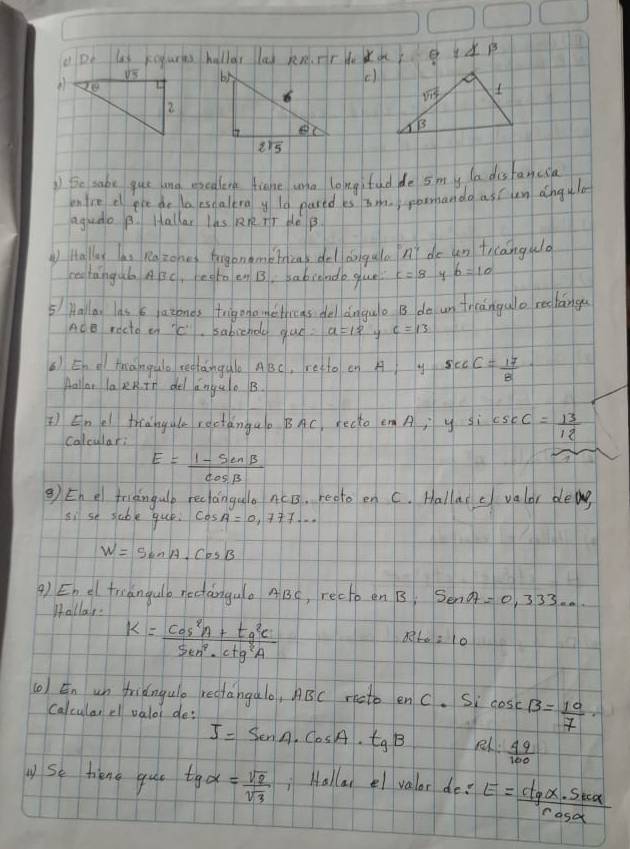 c) De las figuras hallar las RR.TT de ∡α; θ y ∡ β
a) √5 θ 2
b) 6 2√5 θ
c) √15 1 β
3) Se sabe que una escalera tiene una longitud de 5m y la distancia
entre el pie de la escalera y la pared es 3m., formando así un ángulo
agudo β. Hallar las RR TT de β.
4) Hallar las Razones trigonométricas del ángulo "A" de un triángulo
rectángulo ABC, recto en B, sabiendo que: c=8 y b=10
5) Hallar las 6 razones trigonométricas del ángulo B de un triángulo rectángu
ACB recto en "C". sabiendo que: a=12 y c=13
6) En el triángulo rectángulo ABC, recto en A; y secC = 17/8.
Hallar la RR.TT del ángulo B.
7) En el triángulo rectángulo BAC, recto en A; y si cscC = 13/12
Calcular:
E = 1-SenB / cosB
8) En el triángulo rectángulo ACB. recto en C. Hallar el valor de W,
si se sabe que: CosA = 0,777...
W = SenA. CosB
9) En el triángulo rectángulo ABC, recto en B; SenA = 0,333...
Hallar:
K = cos²A + tg²C / Sen². ctg²A Rta = 10
10) En un triángulo rectángulo, ABC recto en C. Si coscB = 10/7.
Calcular el valor de:
J = SenA. CosA. tgB Rt: 49/100
11) Se tiene que tgα = √2/√3; Hallar el valor de: E = ctgα. Secα / cosα